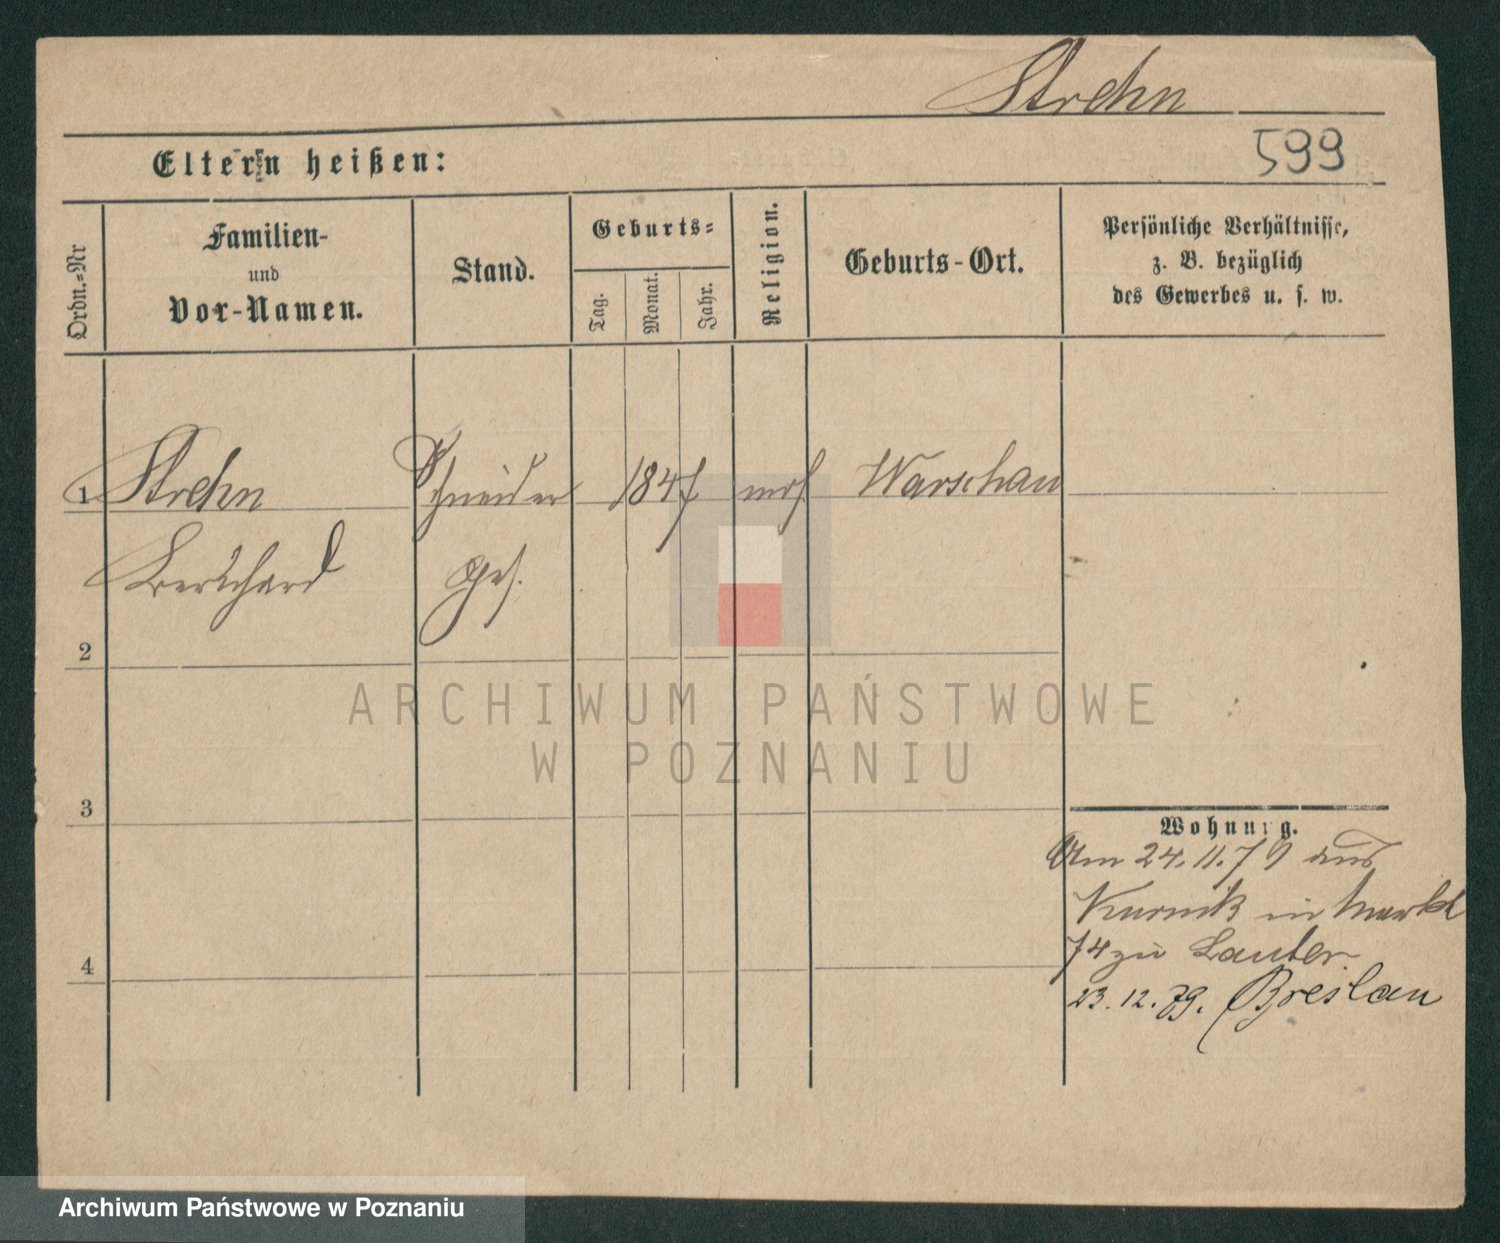 Strehn
Eltern heißen:
599
Ordn.-Nr
Familien-
und
Vor-Namen.
Stand.
Geburts-
Tag.
Monat.
Jahr.
Religion.
Geburts-Ort.
Persönliche Verhältnisse,
z. B. bezüglich
des Gewerbes u. s. w.
1 Strehn Schneider 1847 mos Warschau
Ges.
2
3
4
Wohnung.
Am 24.11.79 aus
Kurnik in Markt
74 zu Lauter
23.12.79. Breslau
ARCHIWUM PAŃSTWOWE
W POZNANIU
Archiwum Państwowe w Poznaniu